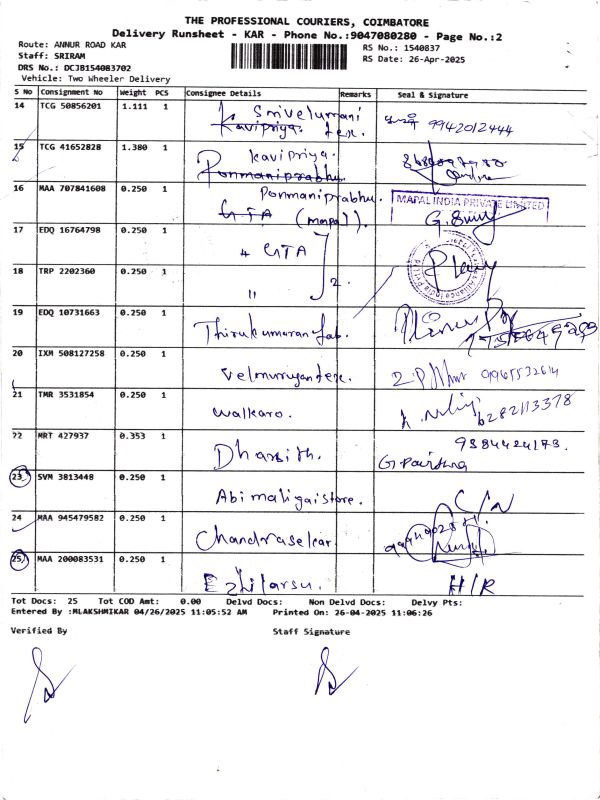 THE PROFESSIONAL COURIERS, COIMBATORE
Delivery Runsheet - KAR - Phone No.:9047080280 - Page No.:2
Route: ANNUR ROAD KAR
Staff: SRIRAM
DRS No.: DCJB154083702
Vehicle: Two Wheeler Delivery
RS No.: 1540837
RS Date: 26-Apr-2025
S No Consignment No Weight PCS Consignee Details Remarks Seal & Signature
14 TCG 50856201 1.111 1 Srivelumani
Kavipriya. tex. 9942012444
15 TCG 41652828 1.380 1 kavipriya.
Ponmaniprabhu.
16 MAA 707841608 0.250 1 Ponmaniprabhu. MAPAL INDIA PRIVATE LIMITED
GTA (Mapal).
17 EDQ 16764798 0.250 1 " GTA
18 TRP 2202360 0.250 1 " 2.
19 EDQ 10731663 0.250 1 Thirukumaran fab.
20 IXM 508127258 0.250 1 Velmuruyan tex.
21 TMR 3531854 0.250 1 walkaro. 6282113378
22 MRT 427937 0.353 1 Dharsith. 9384424173.
23 SVM 3813448 0.250 1 Abimaligai store. C/N
24 MAA 945479582 0.250 1 Chandrasekar
25 MAA 200083531 0.250 1 Ezhilarsu. H/R
Tot Docs: 25 Tot COD Amt: 0.00 Delvd Docs: Non Delvd Docs: Delvy Pts:
Entered By :MLAKSHMIKAR 04/26/2025 11:05:52 AM Printed On: 26-04-2025 11:06:26
Verified By Staff Signature